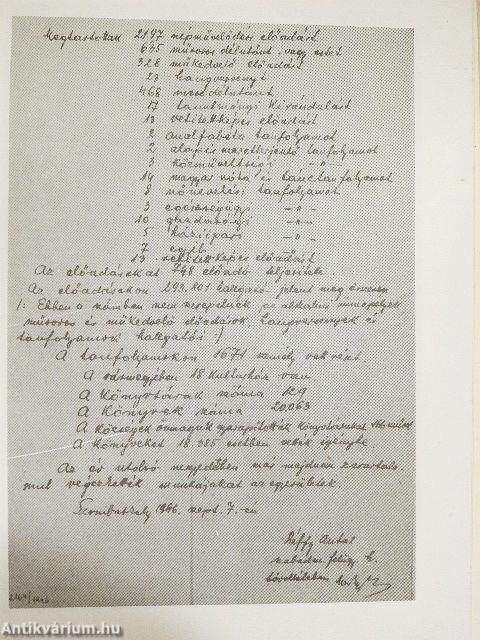 Megtartottak 2197 népművelődési előadást
635 műsoros délutánt, vagy estet
328 műkedvelő előadást
23 hangversenyt
468 mesedélutánt
17 tanulmányi kirándulást
13 vetítettképes előadást
2 analfabéta tanfolyamot
2 alapismeretterjesztő tanfolyamot
3 közműveltségi -"-
14 magyar nóta és tánctanfolyamot
8 nőnevelési tanfolyamot
3 egészségügyi -"-
10 gazdasági -"-
5 háziipari -"-
7 egyéb
13 vetítettképes előadást
Az előadásokat 748 előadó teljesítette.
Az előadásokon 293.801 hallgató jelent meg összesen
/: Ebben a számban nem szerepelnek az alkalmi ünnepélyek,
műsoros és műkedvelő előadások, hangversenyek és
tanfolyamok hallgatói :/
A tanfolyamokon 1671 személy vett részt.
A vármegyében 18 kultúrház van
A könyvtárak száma 129
A könyvek száma 20.063
A községek önmaguk gyarapították könyvtárukat művel
A könyveket 18.385 esetben vették igénybe.
Az év utolsó negyedében már majdnem zavartala-
nul végezhették munkájukat az egyesületek.
Szombathely 1946. szept. 7.-én
Antal
szabadm. felügy. h.
2164/1946
Antikvárium.hu